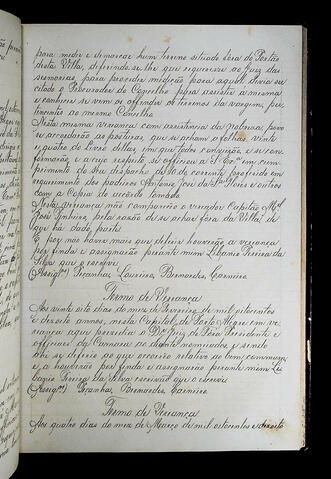 para medir e demarcar hum terreno situado fora do Portão
desta Villa, deferindo-se lhe que requeresse ao Juiz das
sesmarias, para proceder medição para aquel devia ser
citado o Procurador do Conselho para assistir a mesma,
e conhecer se vem os offender os termos da vargem, per-
tencentes ao mesmo Conselho
Nesta mesma veriança com assistencia da nobreza, povo
se accordarão as posturas que se achão a folhas, vinte
e quatro do Livro dellas, em que todos convierão, e se con-
formarão, e a cujo respeito se officiou a S. Exª em cum-
primento do seu despacho de 10 do corrente, proferido em
requerimento dos padeiros Antonio José da Sª Flores e outros
com a Copia do accordo tomado.
Nesta veriança não compareceo o vereador Capitão Mel
José Pinheiro, pela rasão de se achar fora da Villa, de
que ha dado, parte
E por não haver mais que deferir houverão a veriança
por finda e assignarão perante mim Libanio Pereira da
Silva que o escrevi
(Assigos) Peçanha, Loureiro, Bernardes, Carneiro.
Termo de Veriança
Aos vinte oito dias do mez de Fevereiro de mil oitocentos
e dezoito annos, nesta Capital de Porto Alegre em ve-
riança aque procedeu o Dr Juiz de Fóra Presidente e
officiaes da Camara ao diante nomeados, e sendo
ahi se deferio ao que occorreo relativo ao bem commum,
e a houverão por finda e assignarão perante mim Li-
banio Pereira da Silva escrivão que o escrevi
(Assigos) Peçanha Bernardes, Carneiro
Termo de Veriança
Aos quatro dias do mez de Março de mil oitocentos e dezoito